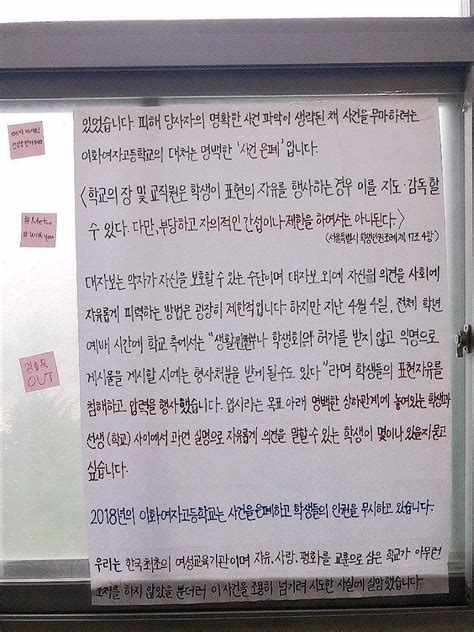 있었습니다. 피해 당사자의 명확한 사건 파악이 생략된 채 사건을 무마하려는
이화여자고등학교의 대처는 명백한 '사건 은폐'입니다.
<학교의 장 및 교직원은 학생이 표현의 자유를 행사하는 경우 이를 지도·감독할
수 있다. 다만, 부당하고 자의적인 간섭이나 제한을 하여서는 아니된다.>
(서울특별시 학생인권조례 제 17조 4항)
대자보는 약자가 자신을 보호할 수 있는 수단이며 대자보 외에 자신의 의견을 사회에
자유롭게 피력하는 방법은 굉장히 제한적입니다. 하지만 지난 4월 4일, 전체 학년
예배 시간에 학교 측에서는 "생활 나 학생회의 허가를 받지 않고 익명으로
게시물을 게시할 시에는 형사처분을 받게 될수도 있다"라며 학생들의 표현자유를
침해하고 압력을 행사했습니다. 입시라는 목표 아래 명백한 상하관계에 놓여있는 학생과
선생(학교) 사이에서 과연 실명으로 자유롭게 의견을 말할 수 있는 학생이 몇이나 있을지 묻고
싶습니다.
2018년의 이화여자고등학교는 사건을 은폐하고 학생들의 인권을 무시하고 있습니다.
우리는 한국 최초의 여성교육기관이며 자유, 사랑, 평화를 교훈으로 삼은 학교가 아무런
조치를 하지 않았을 뿐더러 이 사건을 조용히 넘기려 시도한 사실에 실망했습니다.
#Me too
#With you
OUT